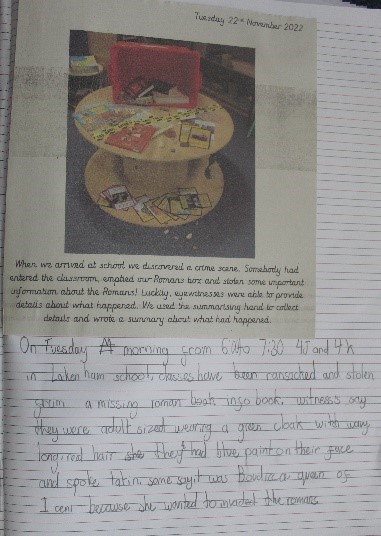 Tuesday 22nd November 2022
When we arrived at school we discovered a crime scene. Somebody had
entered the classroom, emptied our Romans box and stolen some important
information about the Romans! Luckily, eyewitnesses were able to provide
details about what happened. We used the summarising hand to collect
details and wrote a summary about what had happened.
On Tuesday morning from to 7:30 4J and 4K
in Laken ham school, classes have been ransacked and stolen
from a missing roman book info book. witness say
they were adult sized wearing a green cloak with wavy
long, red hair she They had blue paint on their face
and spoke, some say it was queen of
I ceni because she wanted to invaded the romans